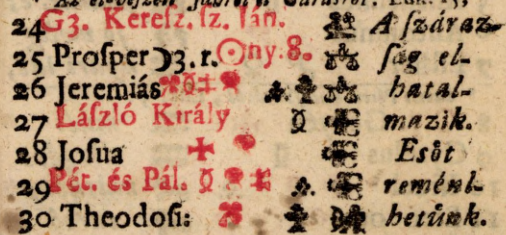 24 G3. Keresz. sz. Ján. A ſzáraz-
25 Proſper 3. r. ny. 8. ſág el-
26 Jeremiás hatal-
27 László Király mazik.
28 Joſua Esőt
29 Pét. és Pál. reménl-
30 Theodoſi: hetünk.